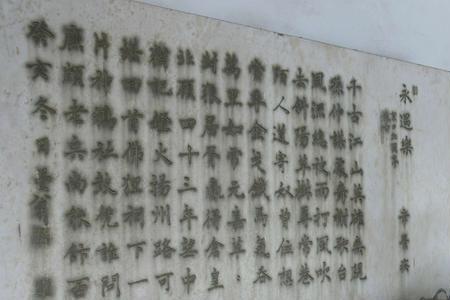 永遇樂 辛棄疾
千古江山英雄無覓
孫仲謀處舞榭歌台
風流總被雨打風吹
去斜陽草樹尋常巷
陌人道寄奴曾住想
當年金戈鐵馬氣吞
萬里如虎元嘉草
封狼居胥贏得倉皇
北顧四十三年望中
猶記烽火揚州路可
堪回首佛狸祠下一
片神鴉社鼓憑誰問
廉頗老矣尚能飯否
癸亥冬日